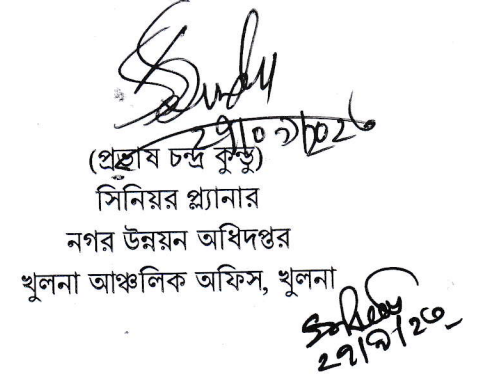 ২৭/০৭/২০২৬
(প্রভাষ চন্দ্র কুন্ডু)
সিনিয়র প্ল্যানার
নগর উন্নয়ন অধিদপ্তর
খুলনা আঞ্চলিক অফিস, খুলনা